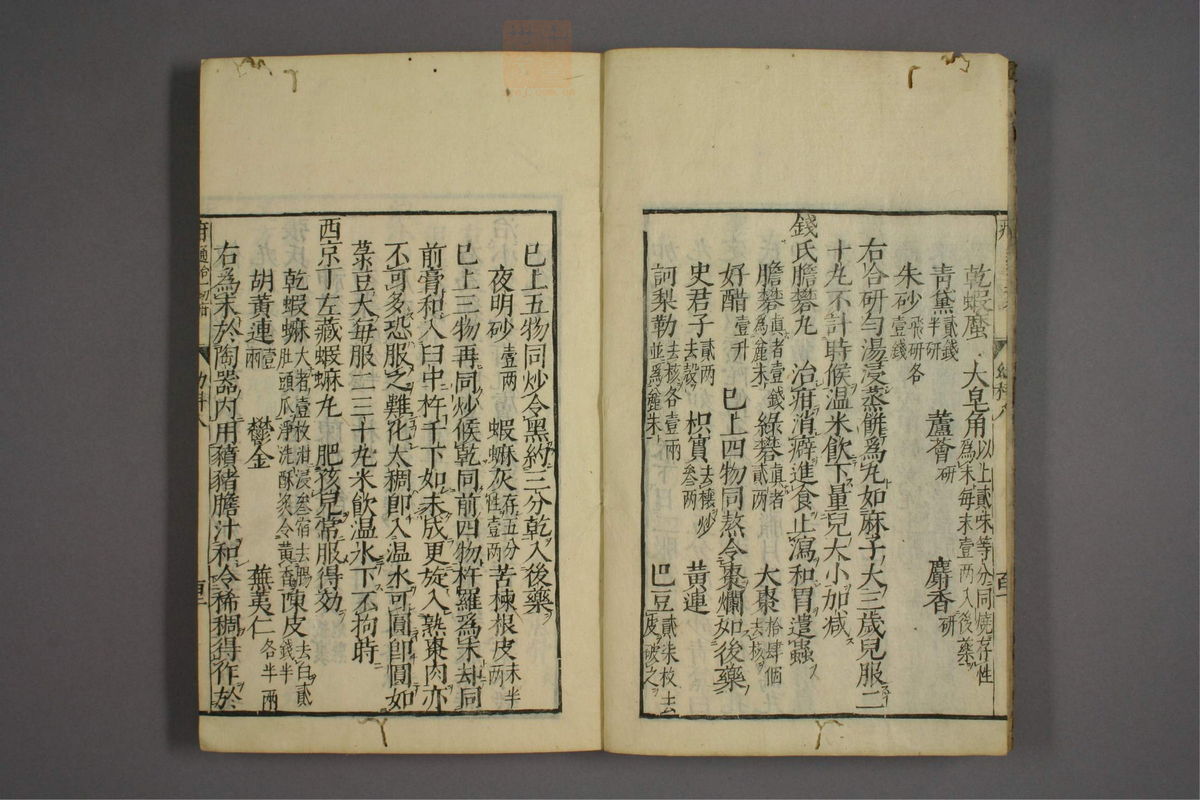 乾蝦蟇 大皂角以上貳味等分同燒存性為末每末壹両入後藥
青黛貳錢半研 蘆薈研 麝香研
朱砂飛研各壹錢
右合研勻湯浸蒸餅為丸如麻子大三歲兒服二
十丸不計時候温米飲下量兒大小加减
錢氏膽礬丸 治疳消癖進食止瀉和胃遣蟲
膽礬真者壹錢為麄末 綠礬真者貳両 大棗拾肆個去核
好醋壹升 已上四物同熬令棗爛如後藥
史君子貳両去殻 枳實去穰炒叁両 黄連
訶梨勒去核各壹両並為麄末 巴豆貳
已上五物同炒令黑約三分乾入後藥
夜明砂壹両 蝦蟆灰存五分性壹両 苦楝根皮末半両
已上三物再同炒候乾同前四物杵羅為末却同
前膏和入臼中杵千下如未成更旋入熟棗肉亦
不可多恐服之難化太稠即入温水可圓即圓如
菉豆大每服二三十丸米飲温水下不拘時
西京丁左藏蝦蟆丸 肥孩兒常服得効
乾蝦蟆大者壹枚泔浸叁宿去腸肚頭爪淨洗酥炙令黄香 陳皮去白貳錢半
胡黄連壹両 鬱金 蕪荑仁各半両
右為末於陶器内用豶猪膽汁和令稀稠得所於